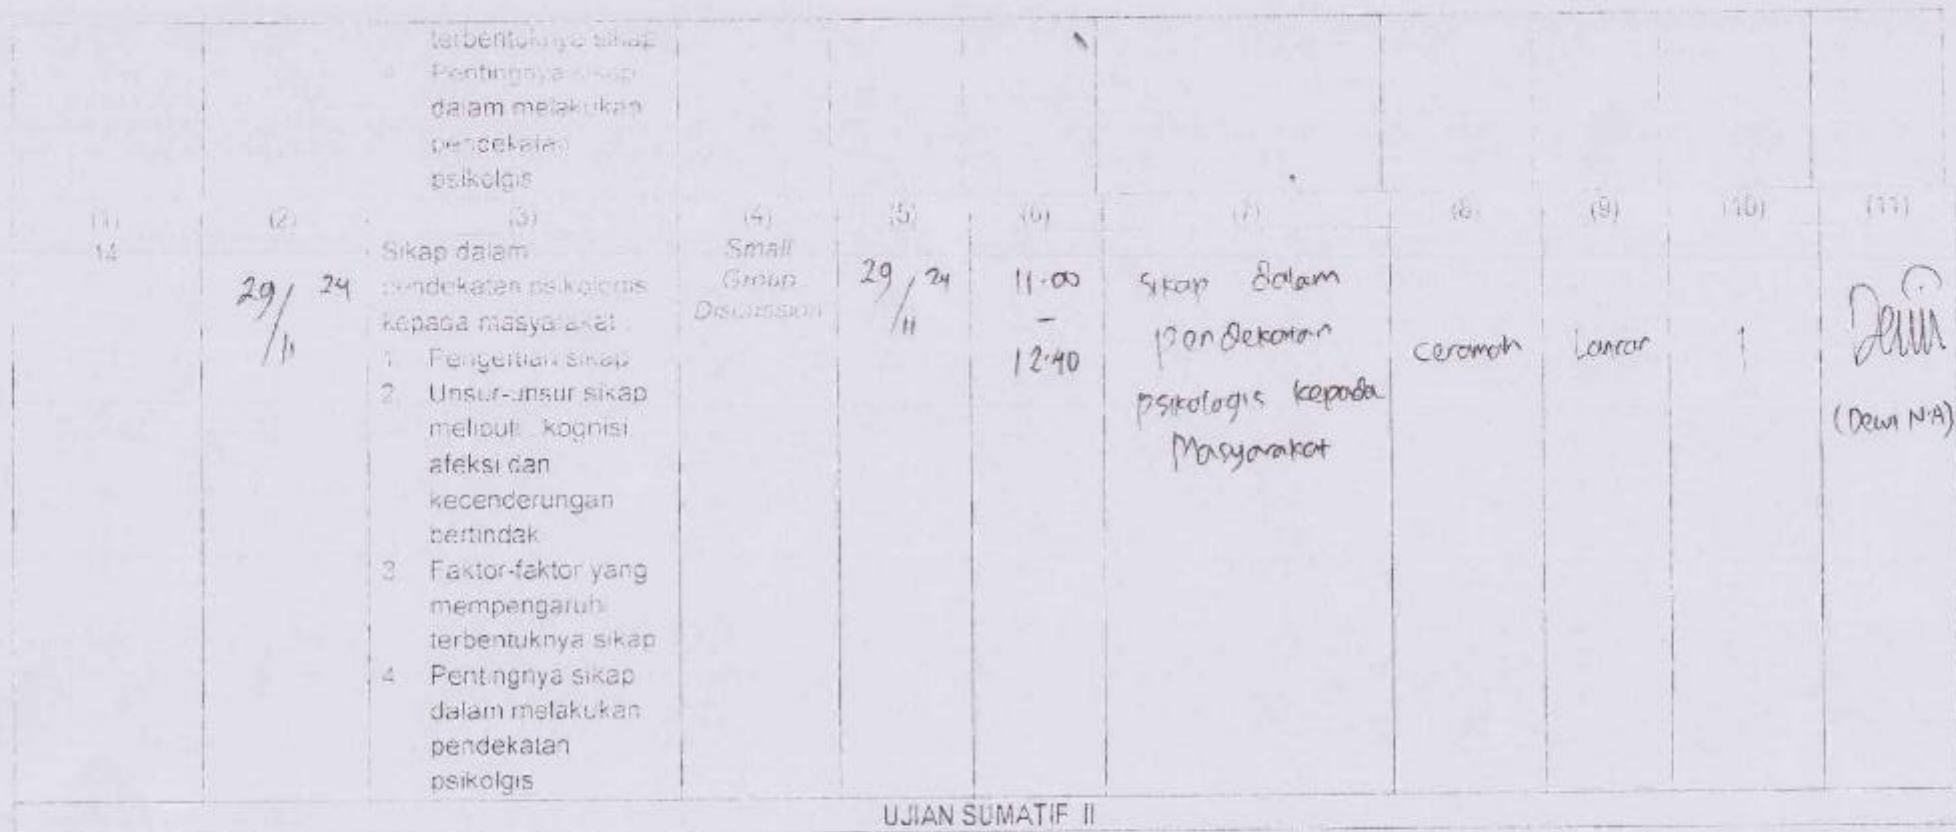 terbentuknya sikap
4. Pentingnya sikap
dalam melakukan
pendekatan
psikolgis
(1) (2) (3) (4) (5) (6) (7) (8) (9) (10) (11)
14
29/11 24
Sikap dalam
pendekatan psikologis
kepada masyarakat :
1. Pengertian sikap
2. Unsur-unsur sikap
meliputi kognisi
afeksi dan
kecenderungan
bertindak
3. Faktor-faktor yang
mempengaruhi
terbentuknya sikap
4. Pentingnya sikap
dalam melakukan
pendekatan
psikolgis
Small
Group
Discussion
29/11 24
11.00
-
12.40
Sikap dalam
pendekatan
psikologis kepada
Masyarakat
ceramah
Lancar
1
Dewi
(Dewi N.A)
UJIAN SUMATIF II